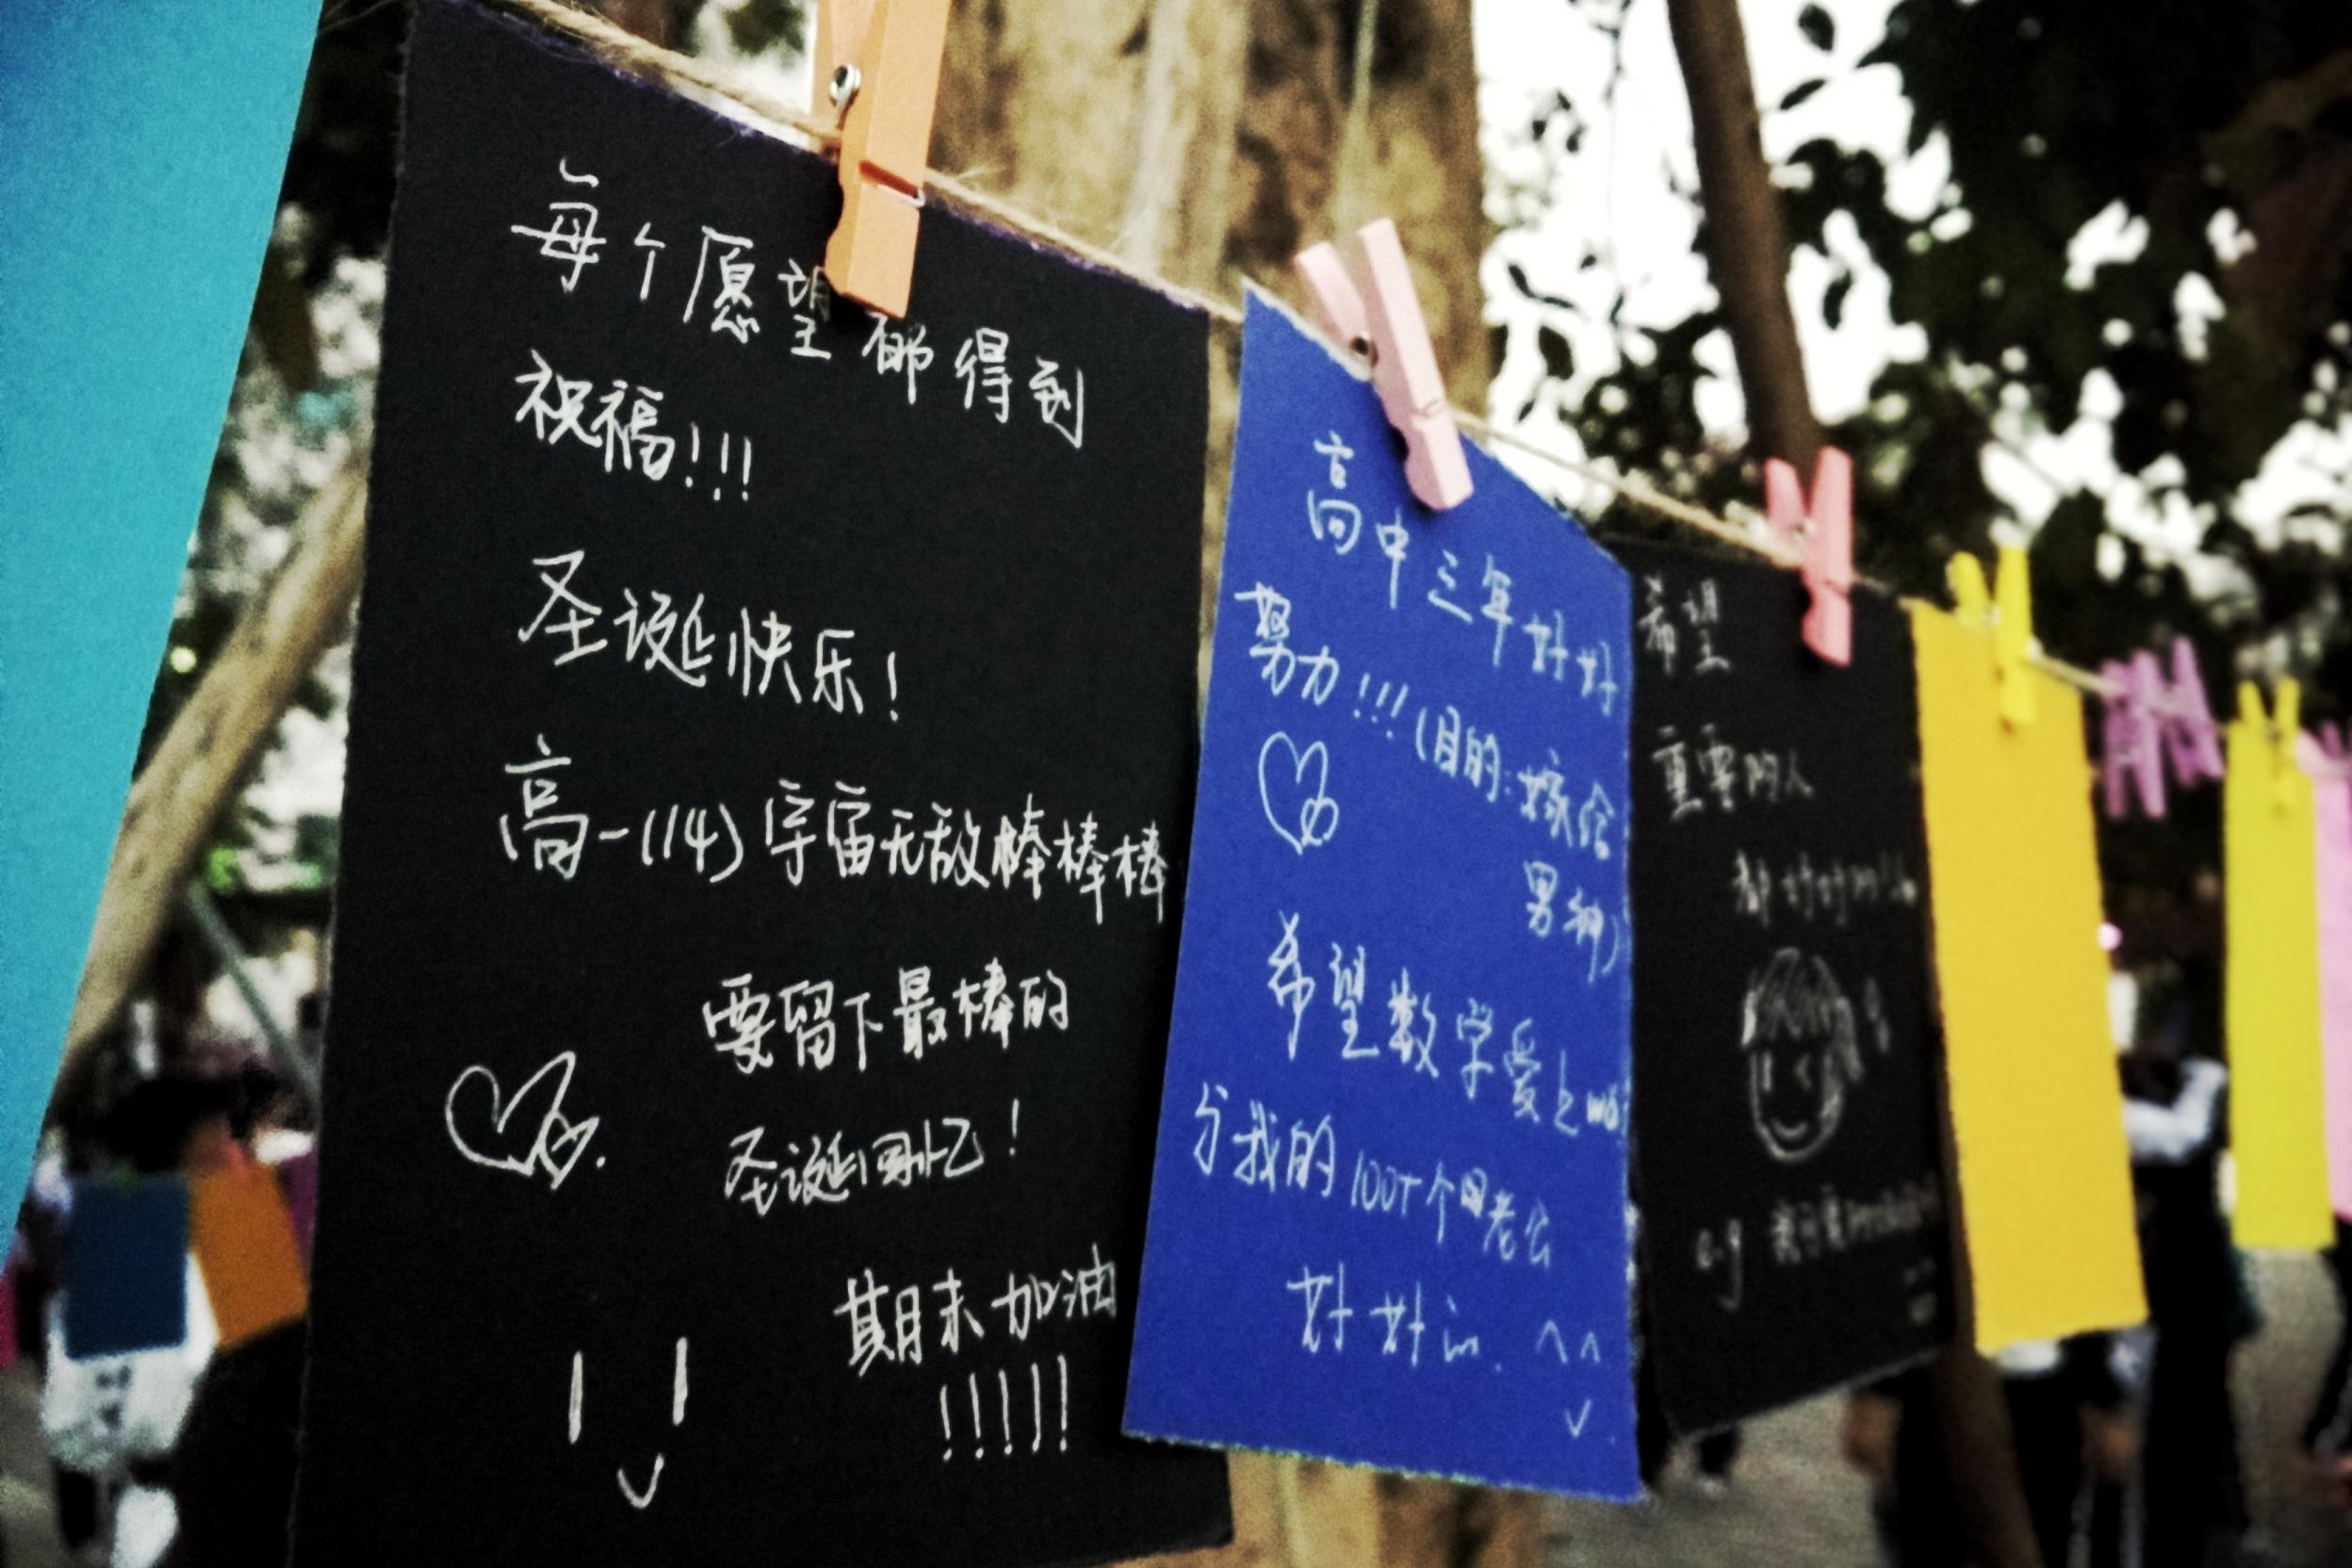 每个愿望都得到
祝福!!!
圣诞快乐!
高一(14)宇宙无敌棒棒棒
要留下最棒的
圣诞回忆!
期末加油
!!!!!
高中三年好好
努力!!!(目的:嫁给
男神)
希望数学爱上
我的100+个老公
好好
希望
重要的人
都好好的
e.g